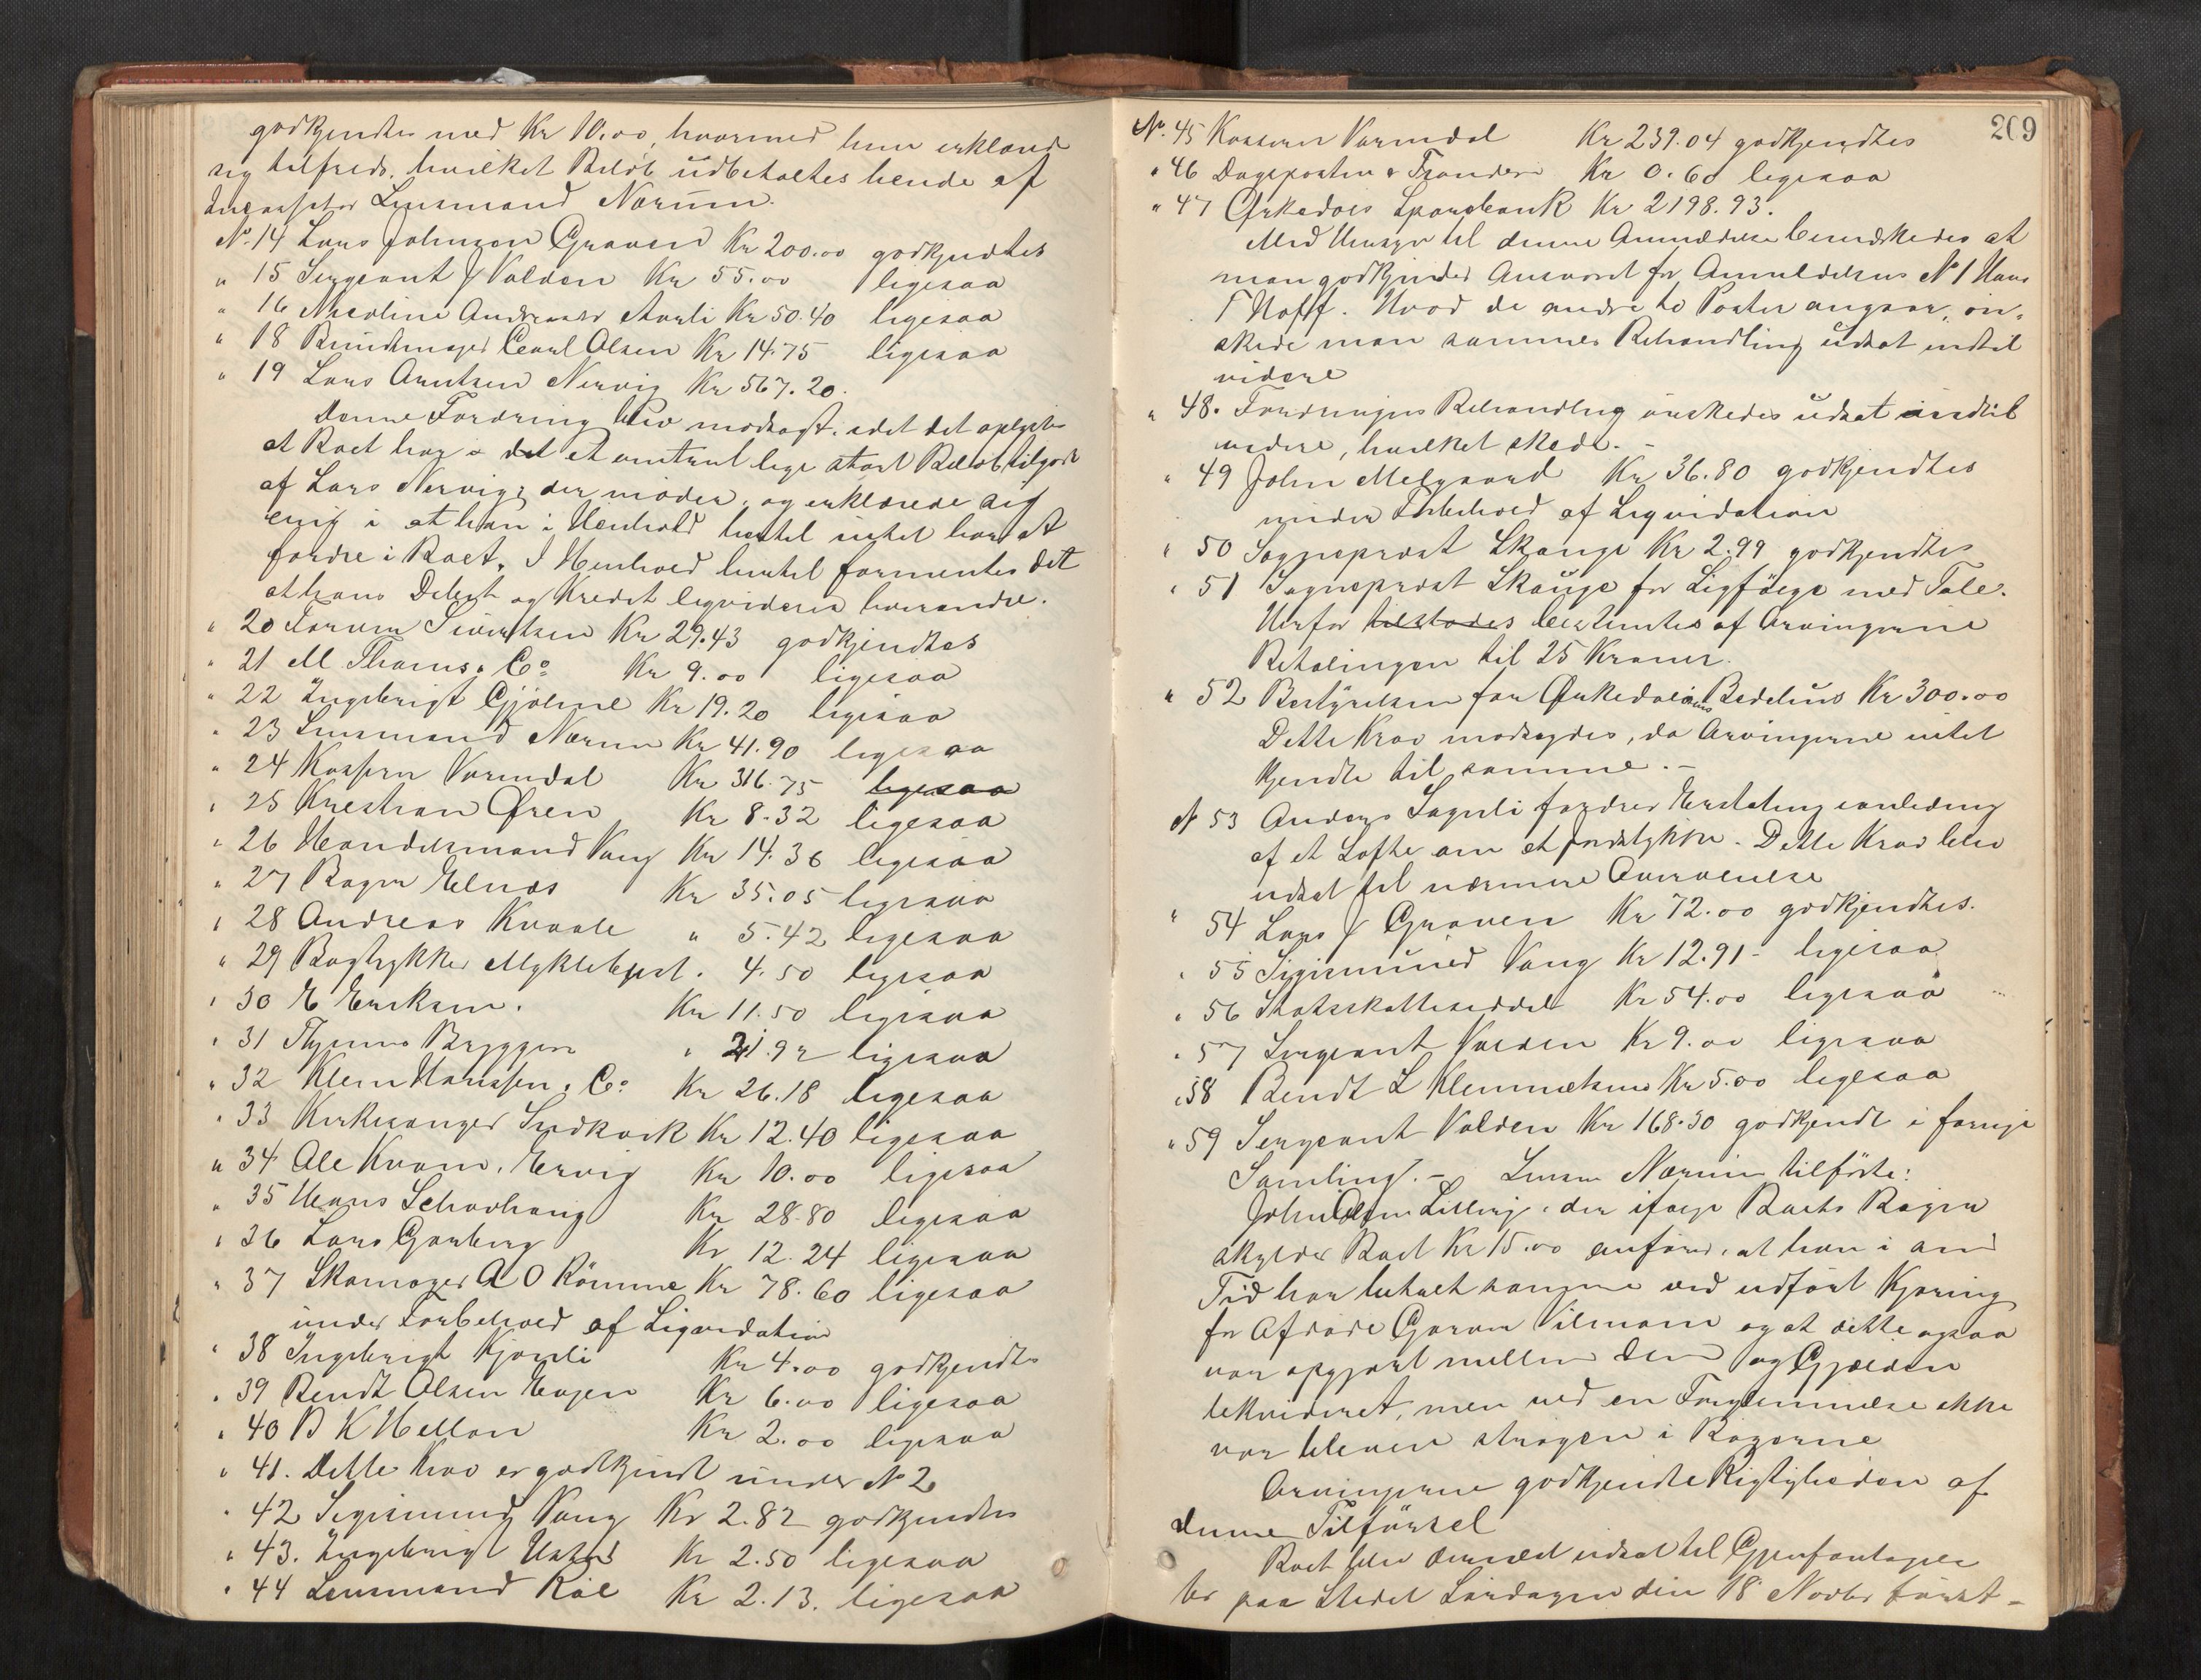 godkjendtes med Kr 10.00, hvormed hun erklærede
sig tilfreds, hvilket Beløb udbetaltes hende af
Incassator Lensmand Nærum.
No. 14 Lars Johnsen Graven Kr 200.00 godkjendtes
" 15 Sergeant J Valden Kr 55.00 ligesaa
" 16 Nicoline Andreasdr Aarli Kr 50.40 ligesaa
" 18 Buntmager Carl Olsen Kr 14.75 ligesaa
" 19 Lars Arntsen Nervig Kr 567.20.
Denne Fordring blev modsagt, idet det oplystes
at Boet har i det et omtrent lige stort Beløb tilgode
af Lars Nervig, der møder, og erklærede sig
enig i at han i Henhold hertil intet har at
fordre i Boet. I Henhold hertil formentes det
at hans Debet og Kredit ligviderer hverandre.
" 20 Farver Sivertsen Kr 29.43 godkjendtes
" 21 M. Thams & Co Kr 9.00 ligesaa
" 22 Ingebrigt Gjølme Kr 19.20 ligesaa
" 23 Lensmand Nærum Kr 41.90 ligesaa
" 24 Kasserer Vormdal Kr 316.75 ligesaa
" 25 Kristian Øren Kr 8.32 ligesaa
" 26 Handelsmand Vang Kr 14.36 ligesaa
" 27 Bager Elnæs Kr 35.05 ligesaa
" 28 Andreas Kvaale " 5.42 ligesaa
" 29 Bogtrykker Myklebust " 4.50 ligesaa
" 30 E Eriksen. Kr 11.50 ligesaa
" 31 Bryggeri " 21.92 ligesaa
" 32 Klem Hansen & Co Kr 26.18 ligesaa
" 33 Kirkesanger Kr 12.40 ligesaa
" 34 Ole Kvam, Ervig Kr 10.00 ligesaa
" 35 Hans Kr 28.80 ligesaa
" 36 Lars Garberg Kr 12.24 ligesaa
" 37 Skomager A O Rømme Kr 78.60 ligesaa
under Forbehold af Liqvidation
" 38 Ingebrigt Kjorli Kr 4.00 godkjendtes
" 39 Bendt Olsen Kr 6.00 ligesaa
" 40 B K Kr 2.00 ligesaa
" 41. Dette Krav er godkjendt under No 2
" 42 Sigismund Vang Kr 2.82 godkjendtes
" 43. Ingebrigt Kr 2.50 ligesaa
" 44 Lensmand Kr 2.13. ligesaa
209
No. 45 Kasserer Vormdal Kr 239.04 godkjendtes
" 46 Dagsposten, Trondhj Kr 0.60 ligesaa
" 47 Ørkedals Sparebank Kr 2198.93.
Med Hensyn til denne Anmeldelse bemærkedes at
man godkjender Ansvaret for Anmeldelsens No 1 Hans
T Hoff. Hvad de andre to Poster angaar, øn-
skede man sammes Behandling udsat indtil
videre
" 48. Fordringens Behandling ønskedes udsat indtil
videre, hvilket skede. -
" 49 John Melgaard Kr 36.80 godkjendtes
under Forbehold af Liqvidation
" 50 Sogneprest Skauge Kr 2.99 godkjendtes
" 51 Sogneprest Skauge for Ligfølge med Tale.
Herfor tilstodes bestemtes af Arvingerne
Betalingen til 25 Kroner.
" 52 Bestyrelsen for Ørkedalens Bedehus Kr 300.00
Dette Krav modsagdes, da Arvingerne intet
kjendte til samme. -
No 53 Anders Saguli fordrer Erstatning i anledning
af et Løfte om et Jordstykke. Dette Krav blev
udsat til nærmere Overveielse
" 54 Lars J Graven Kr 72.00 godkjendtes.
" 55 Sigismund Vang Kr 12.91 - ligesaa
" 56 Statsskatteseddel Kr 54.00 ligesaa
" 57 Sergeant Valden Kr 9.00 ligesaa
" 58 Bendt L Klemmetsen Kr 5.00 ligesaa
" 59 Sergeant Valden Kr 168.30 godkjendt i forrige
Samling. - Lensm Nærum tilførte:
John Olsen der ifølge Boets Bøger
skylder Boet Kr 15.00 anfører, at han i sin
Tid har betalt samme ved udført Kjøring
for Afdøde Garver Vilmann og at dette ogsaa
var opgjort mellem dem og Gjælden
likvideret, men ved en Forglemmelse ikke
var bleven strøgen i Bøgerne
Arvingerne godkjendte Rigtigheden af
denne Tilførsel
Boet blev dernæst udsat til Gjenforetagel-
se paa Stedet Lørdagen den 18 Novbr først-